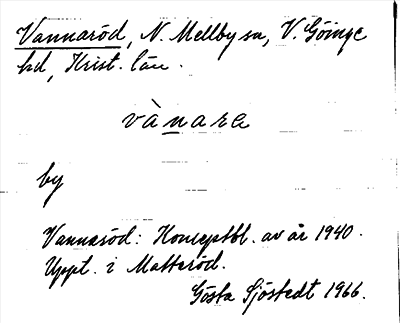 Vannaröd, N. Mellby sn, V. Göinge
hd, Krist. län.
vànara
by
Vannaröd: Konceptbl. av år 1940.
Uppt. i Matteröd.
Gösta Sjöstedt 1966.